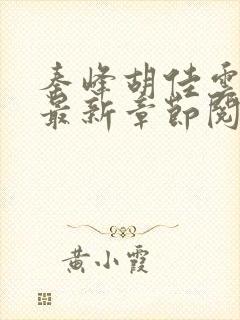 秦峰胡佳雲
最新章節閱
黄小霞